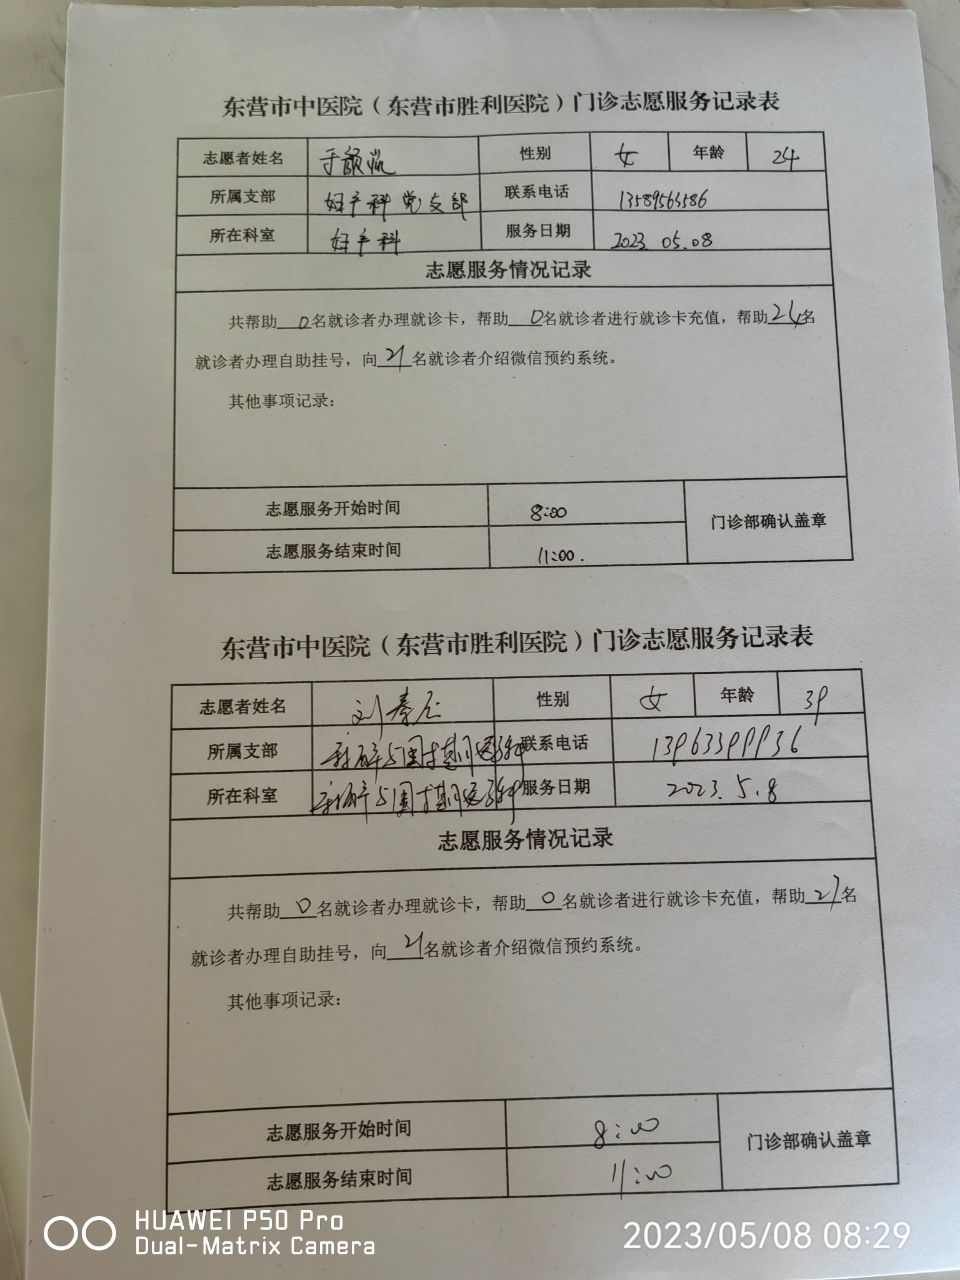 东营市中医院（东营市胜利医院）门诊志愿服务记录表
志愿者姓名 于颜 性别 女 年龄 24
所属支部 妇产科党支部 联系电话 13589563586
所在科室 妇产科 服务日期 2023.05.08
志愿服务情况记录
共帮助0名就诊者办理就诊卡，帮助0名就诊者进行就诊卡充值，帮助24名
就诊者办理自助挂号，向21名就诊者介绍微信预约系统。
其他事项记录：
志愿服务开始时间 8:00
门诊部确认盖章
志愿服务结束时间 11:00.
东营市中医院（东营市胜利医院）门诊志愿服务记录表
志愿者姓名 刘秦 性别 女 年龄 39
所属支部 与围 联系电话 13963399936
所在科室 与围 服务日期 2023.5.8
志愿服务情况记录
共帮助0名就诊者办理就诊卡，帮助0名就诊者进行就诊卡充值，帮助27名
就诊者办理自助挂号，向21名就诊者介绍微信预约系统。
其他事项记录：
志愿服务开始时间 8:00
门诊部确认盖章
志愿服务结束时间 11:00
HUAWEI P50 Pro
Dual-Matrix Camera
2023/05/08 08:29